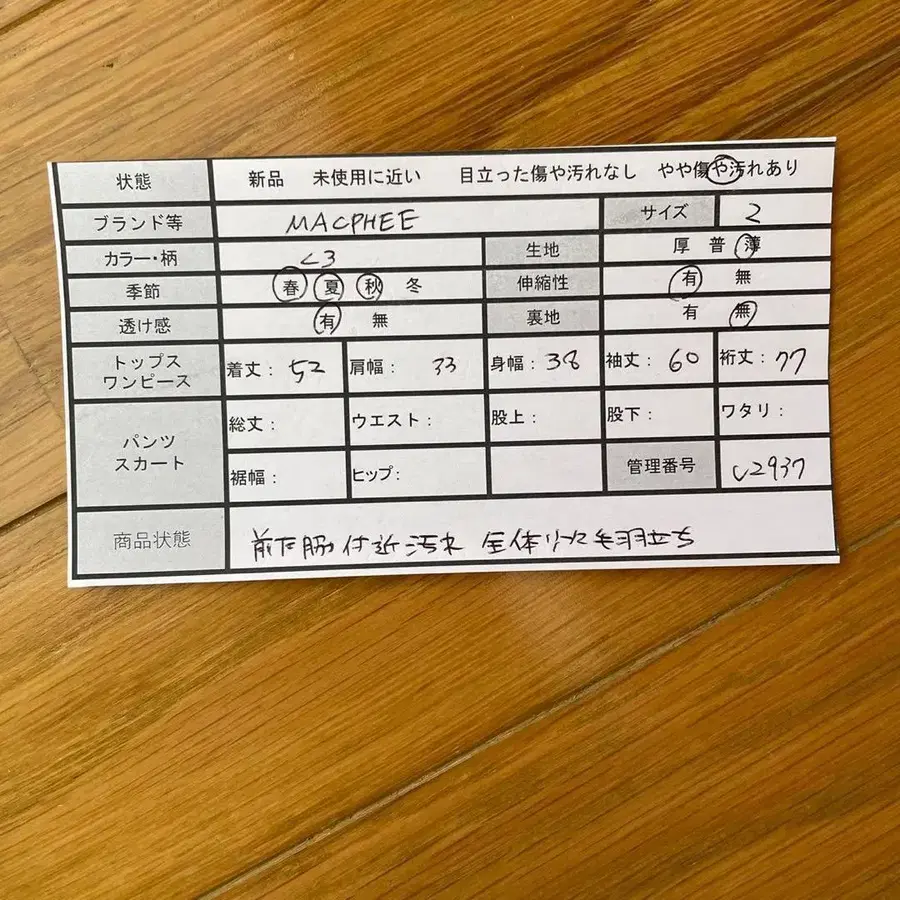 状態 新品 未使用に近い 目立った傷や汚れなし やや傷や汚れあり
ブランド等 MACPHEE サイズ 2
カラー・柄 <3 生地 厚 普 薄
季節 春 夏 秋 冬 伸縮性 有 無
透け感 有 無 裏地 有 無
トップス
ワンピース
着丈: 52 肩幅: 33 身幅: 38 袖丈: 60 裄丈: 77
パンツ
スカート
総丈: ウエスト: 股上: 股下: ワタリ:
裾幅: ヒップ: 管理番号 2937
商品状態 付近汚れ 全体 毛羽立ち